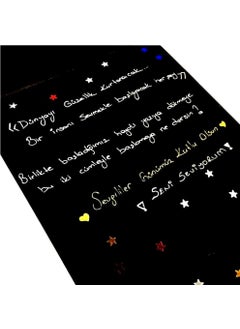 “Dünyayı Güzellik Kurtaracak...
Bir insanı Sevmekle başlayacak her şey”
Birlikte başladığımız hayatı yazıya dökmeye
bu iki cümleyle başlamaya ne dersin?
Sevgililer Günümüz Kutlu Olsun
Seni Seviyorum